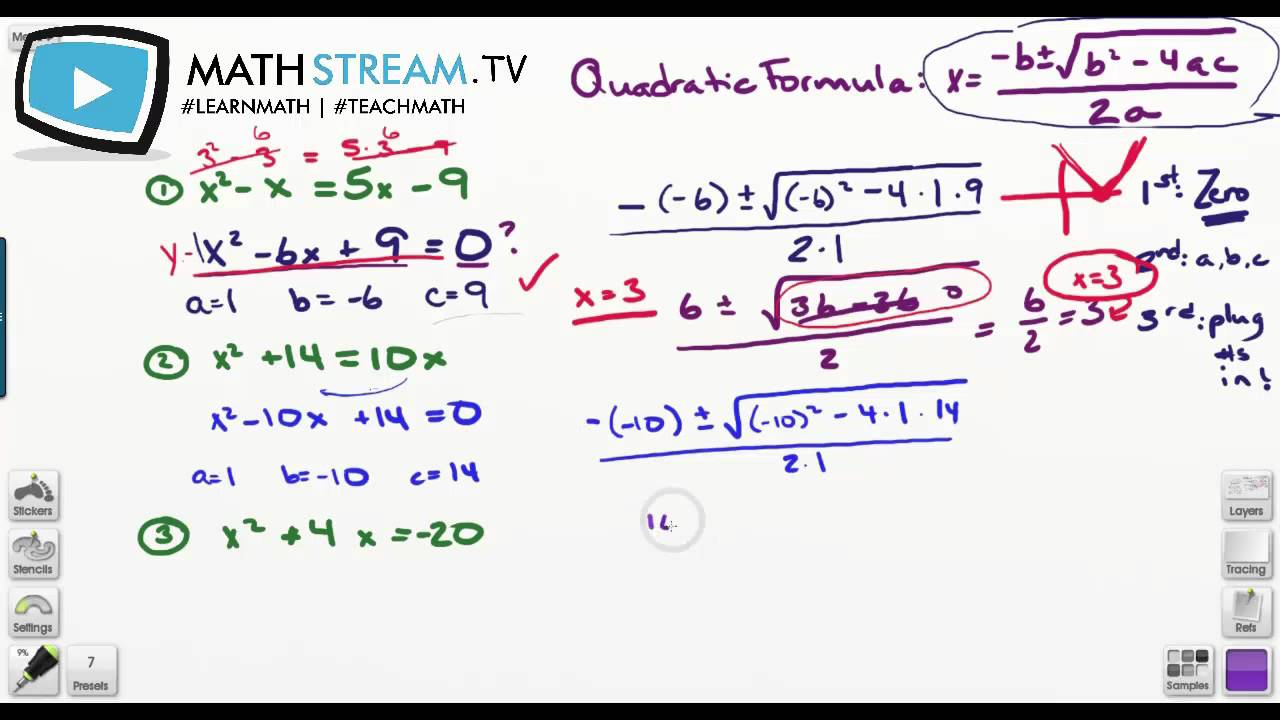 MATH STREAM.TV
#LEARNMATH | #TEACHMATH
Quadratic Formula: x = (-b ± √(b² - 4ac)) / 2a
3² - 3 = 5·3 - 9
6 6
① x² - x = 5x - 9
y = 1x² - 6x + 9 = 0?
a=1 b=-6 c=9
② x² + 14 = 10x
x² - 10x + 14 = 0
a=1 b=-10 c=14
③ x² + 4x = -20
(-(-6) ± √((-6)² - 4·1·9)) / 2·1
x=3
(6 ± √(36 - 36 0)) / 2 = 6/2 = 3
x=3
(-(-10) ± √((-10)² - 4·1·14)) / 2·1
1st: Zero
2nd: a, b, c
3rd: plug
#s
in!
Stickers
Stencils
Settings
9%
7
Presets
Layers
Tracing
Refs
Samples